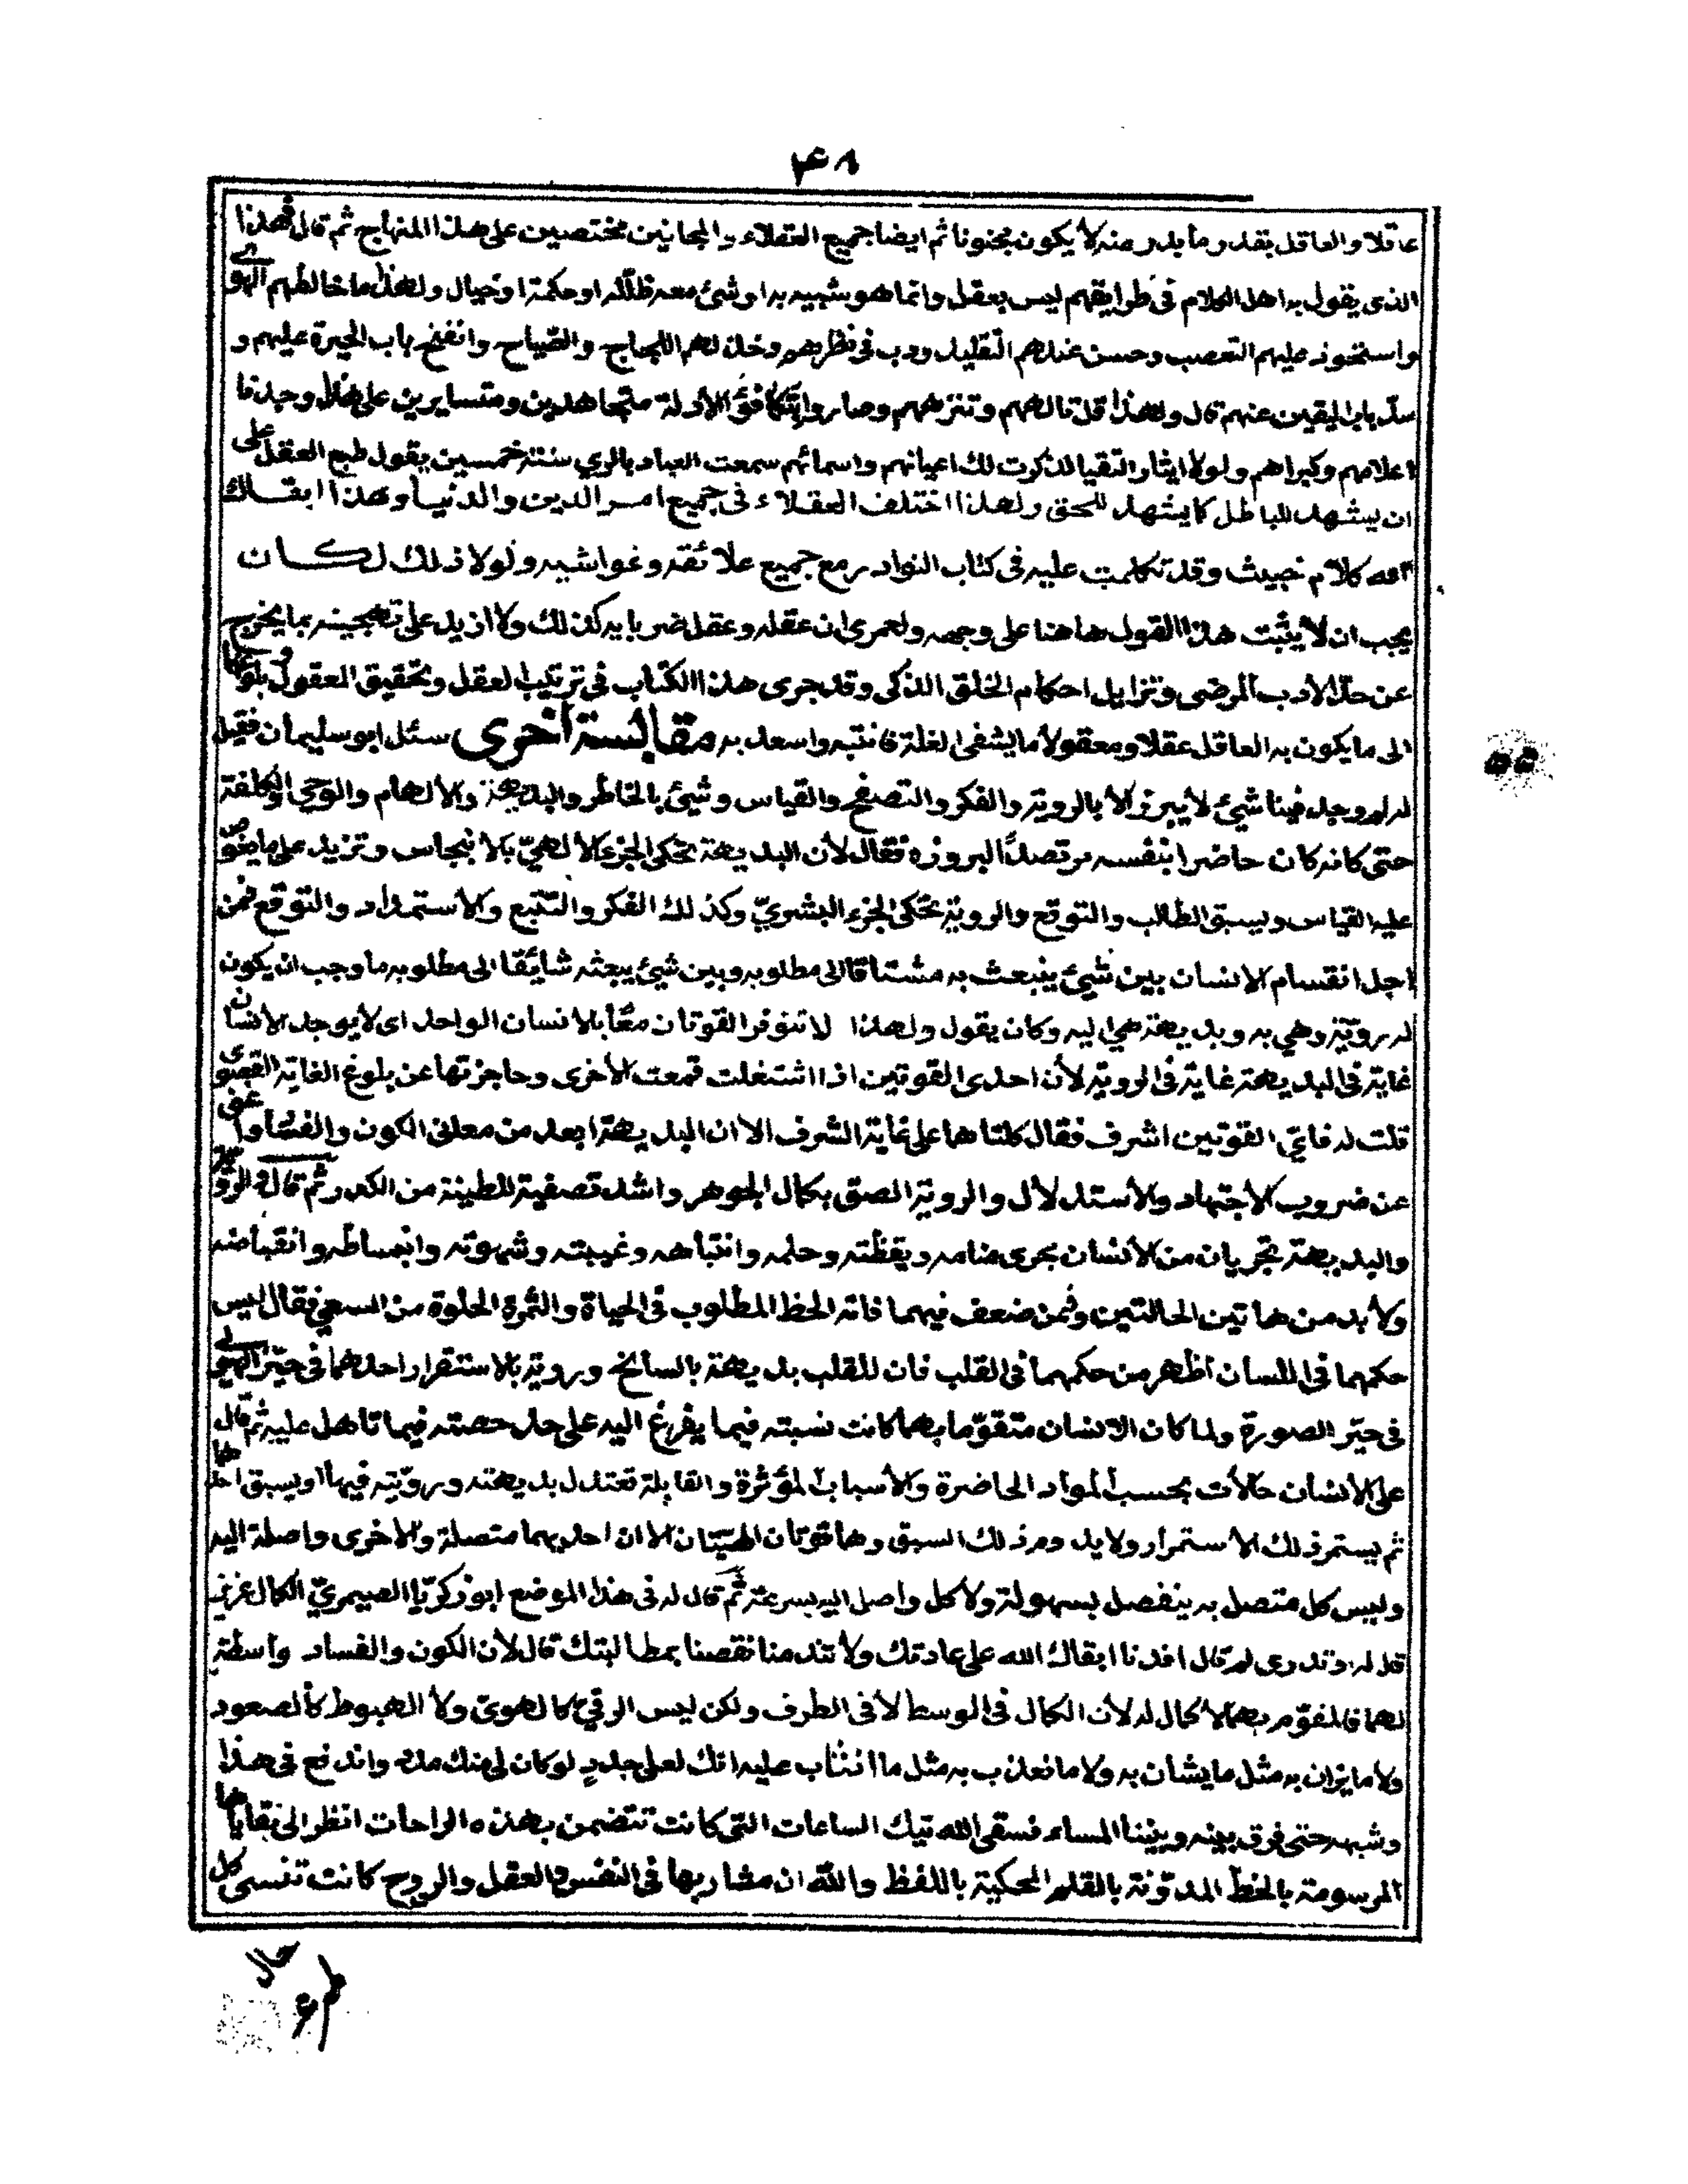 ۴۸
عاقلا والعاقل بقدر ما بدر منه لا يكون مجنونا ثم ايضا جميع العقلاء والمجانين مختصين على هذا المنهاج ثم قال فهذا
الذى يقول به اهل الكلام فى طرايقهم ليس بعقل وانما هو شبيه به او شئ معه ظلّه او حكمة او خيال ولهذا ما خالطهم الهوى
واستحوذ عليهم التعصب وحسن عندهم التقليد ودب فى نظرهم وخلد لهم اللجاج والصّياح وانفتح باب الحيرة عليهم و
سدّ باب اليقين عنهم قال ولهذا قلّ تالههم وتنزههم وصاروا بتكافؤ الأدلة متجاهدين ومتسايرين على هذا وجدنا
اعلامهم وكبراهم ولولا ايثار التقيا لذكرت لك اعيانهم واسمائهم سمعت العباد بالري سنة خمسين يقول طبع العقل على
ان يشهد للباطل كما يشهد للحق ولهذا اختلف العقلاء فى جميع امر الدين والدنيا وهذا ابقاك
الله كلام خبيث وقد تكلمت عليه فى كتاب النوادر مع جميع علائقه وغواشيه ولولا ذلك لكان
يجب ان لا يثبت هذا القول هاهنا على وجهه ولعمرى ان عقله وعقل ضربايه كذلك ولا ازيد على تهجينه بما يخرج
عن حدّ الأدب المرضى وتزايل احكام الخلق الذكى وقد جرى هذا الكتاب فى ترتيب العقل وتحقيق المعقول بلوغا
الى ما يكون به العاقل عقلا ومعقولا ما يشفى الغلة فانتبه واسعد به مقابسة اخرى سئل ابو سليمان فقيل
له لم وجد فينا شيئ لا يبرز الا بالروية والفكر والتصفح والقياس وشيئ بالخاطر والبديهة والألهام والوحى والكلفة
حتى كانه كان حاضرا بنفسه مرتصدًا لبروزه فقال لأن البديهة تحكى الجزء الالهيّ بالانبجاس وتزيد على ما يغوص
عليه القياس ويسبق الطالب والتوقع والروية تحكى الجزء البشريّ وكذلك الفكر والتتبع والأستمداد والتوقع فمن
اجل انقسام الانسان بين شيئ ينبعث به مشتاقا الى مطلوبه وبين شيئ يبعثه شايقا الى مطلوبه ما وجب ان يكون
له رويّة وهي به وبديهة هي اليه وكان يقول ولهذا لا تتوفر القوتان معًا بالانسان الواحد اى لا يوجد الانسان
غاية فى البديهة غاية فى الروية لأن احدى القوتين اذا اشتغلت قمعت الأخرى وحاجزتها عن بلوغ الغاية القصوى
قلت له فايّ القوتين اشرف فقال كلتاهما على غاية الشرف الا ان البديهة ابعد من معانى الكون والفساد واغنى
عن ضروب الاجتهاد والأستدلال والروية الصق بكمال الجوهر واشد تصفية للطينة من الكدر ثم قال فى الروية
والبديهة تجريان من الأنسان مجرى منامه ويقظته وحلمه وانتباهه وغيبته وشهوته وانبساطه وانقباضه
ولابد من هاتين الحالتين ومن ضعف فيهما فاته الحظ المطلوب فى الحياة والثمرة الحلوة من السعى فقال ليس
حكمهما فى اللسان اظهر من حكمهما فى القلب فان للقلب بديهة بالسانح وروية بالاستقرار احدهما فى حيّز الهيولى
فى حيّز الصورة ولما كان الانسان متقوّما بهما كانت نسبته فيما يفرغ اليه على حد حصته فيما تاهل عليه ثم قال
على الأنسان حالات بحسب المواد الحاضرة والأسباب المؤثرة والقابلة تعتدل بديهته ورويّته فيهما او يسبق احدهما
ثم يستمر ذلك الأستمرار ولايد ومر ذلك السبق وهما قوتان الهيّتان الا ان احديهما متصلة والاخرى واصلة اليه
وليس كل متصل به ينفصل بسهولة ولا كل واصل اليه بسرعة ثم قال له فى هذا الموضع ابو زكريّا الصيمريّ الكمال عزيز
قل له وتدرى لم قال افدنا ابقاك الله على عادتك ولا تندمنا نقصنا بمطالبتك قال لأن الكون والفساد واسطة
لهما فالمقوّم بهما لا كمال له لأن الكمال فى الوسط لا فى الطرف ولكن ليس الرقيّ كالهوىّ ولا الهبوط كالصعود
ولا ما يزان به مثل ما يشان به ولا ما نعذب به مثل ما اثناب عليه انك لعلى جدير لو كان لى منك مدد واندفع فى هذا
وشبهه حتى فرق بينه وبيننا المساء فسقى الله تيك الساعات التى كانت تتضمن بهذه الراحات انظر الى بقاياها
المرسومة بالخطّ المدوّنة بالقلم المحكية باللفظ والله ان مشاربها فى النفس والعقل والروح كانت تنسى كل
حال